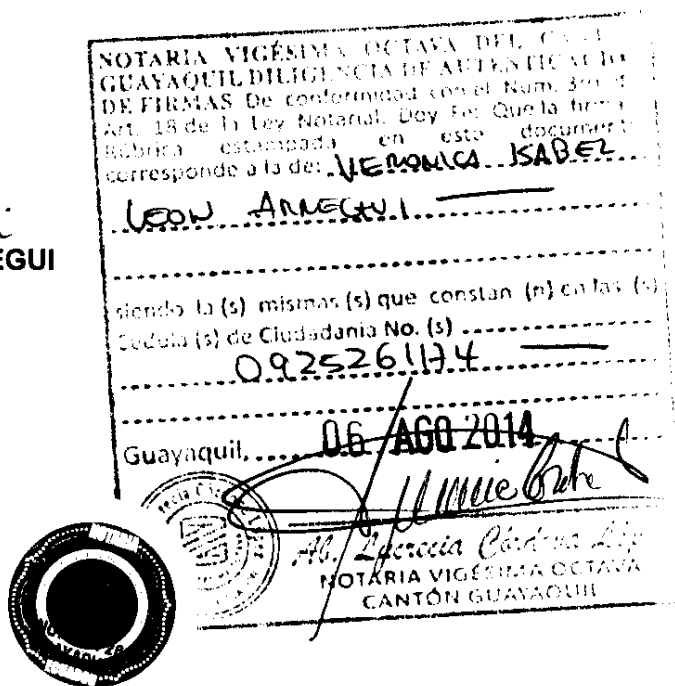 NOTARIA VIGÉSIMA OCTAVA DEL
GUAYAQUIL DILIGENCIA DE AUTENTICACIÓN
DE FIRMAS De conformidad con el Num. 3ro. d
Art. 18 de la Ley Notarial. Doy Fe: Que la firma
Rúbrica estampada en este document
corresponde a la de: VERONICA ISABEL
LEON ARREGUI
EGUI
siendo la (s) mismas (s) que constan (n) en las (s)
Cedula (s) de Ciudadania No. (s)
0925261174
Guayaquil, 06 AGO 2014
Ab. Lucrecia Córdova Lóp
NOTARIA VIGÉSIMA OCTAVA
CANTÓN GUAYAQUIL